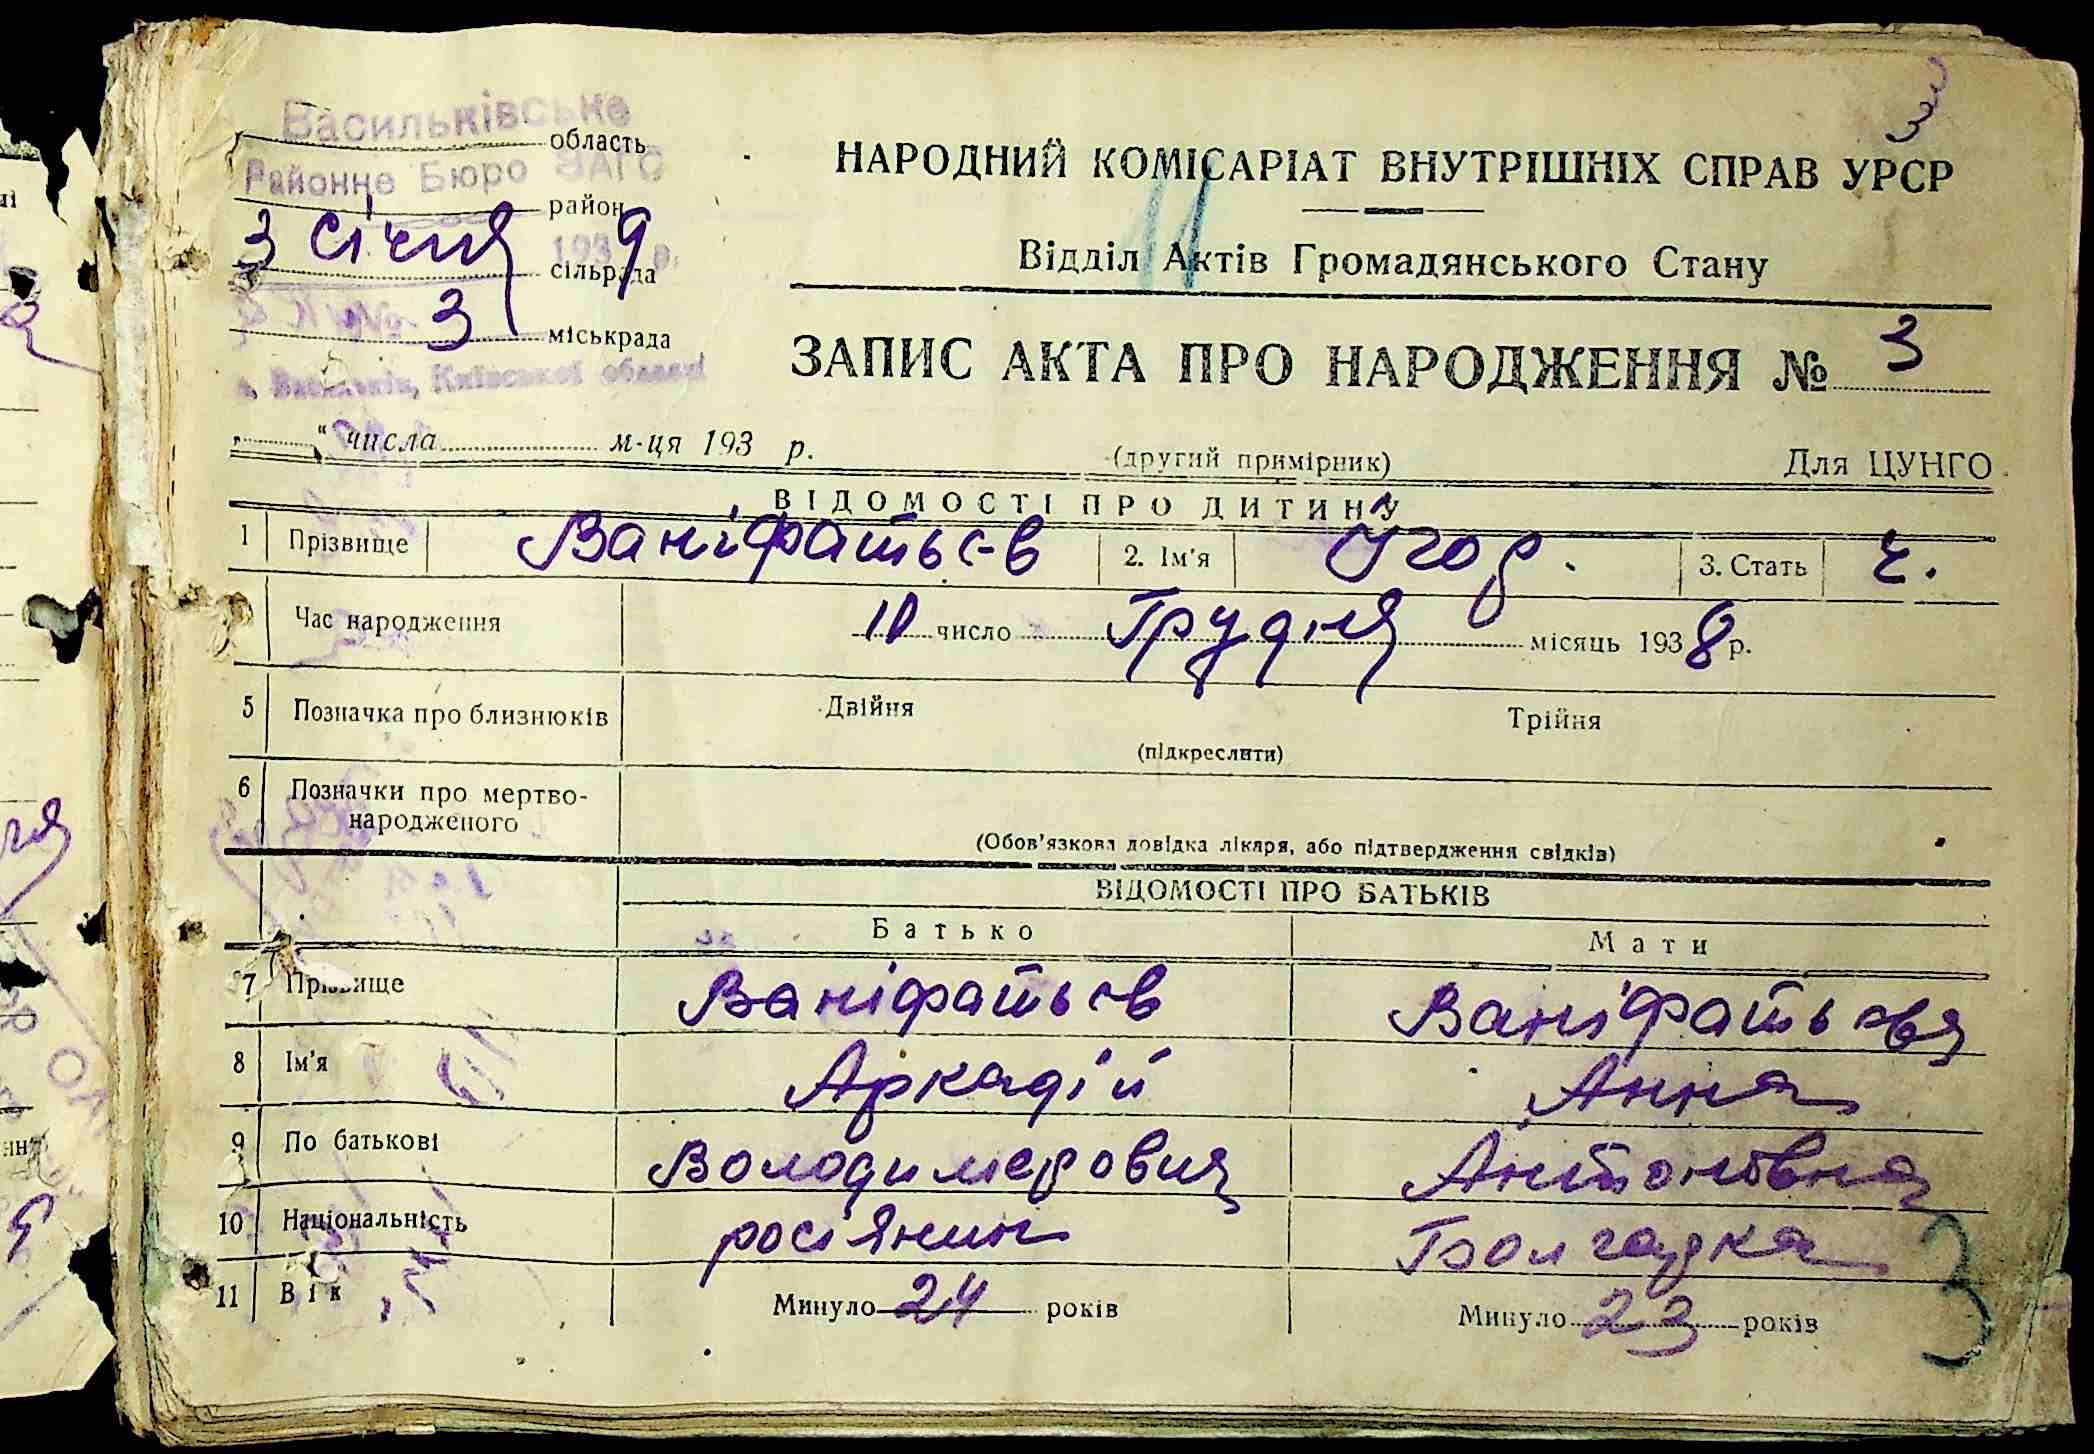 3
Васильківське
область
Районне Бюро ЗАГС
район
3 січня 1939 р.
сільрада
3
міськрада
м. Васильків, Київської області
НАРОДНИЙ КОМІСАРІАТ ВНУТРІШНІХ СПРАВ УРСР
11
Відділ Актів Громадянського Стану
ЗАПИС АКТА ПРО НАРОДЖЕННЯ № 3
" " числа м-ця 193 р.
(другий примірник)
Для ЦУНГО
ВІДОМОСТІ ПРО ДИТИНУ
1 Прізвище Ваніфатьєв 2. Ім'я Ігор. 3. Стать ч.
Час народження 10 число Грудня місяць 1938 р.
5 Позначка про близнюків Двійня Трійня
(підкреслити)
6 Позначки про мертво-
народженого
(Обов'язкова довідка лікаря, або підтвердження свідків)
ВІДОМОСТІ ПРО БАТЬКІВ
Батько Мати
7 Прізвище Ваніфатьєв Ваніфатьєва
8 Ім'я Аркадій Анна
9 По батькові Володимерович Антоновна
10 Національність росіянин Болгарка
11 Вік Минуло 24 років Минуло 23 років
3